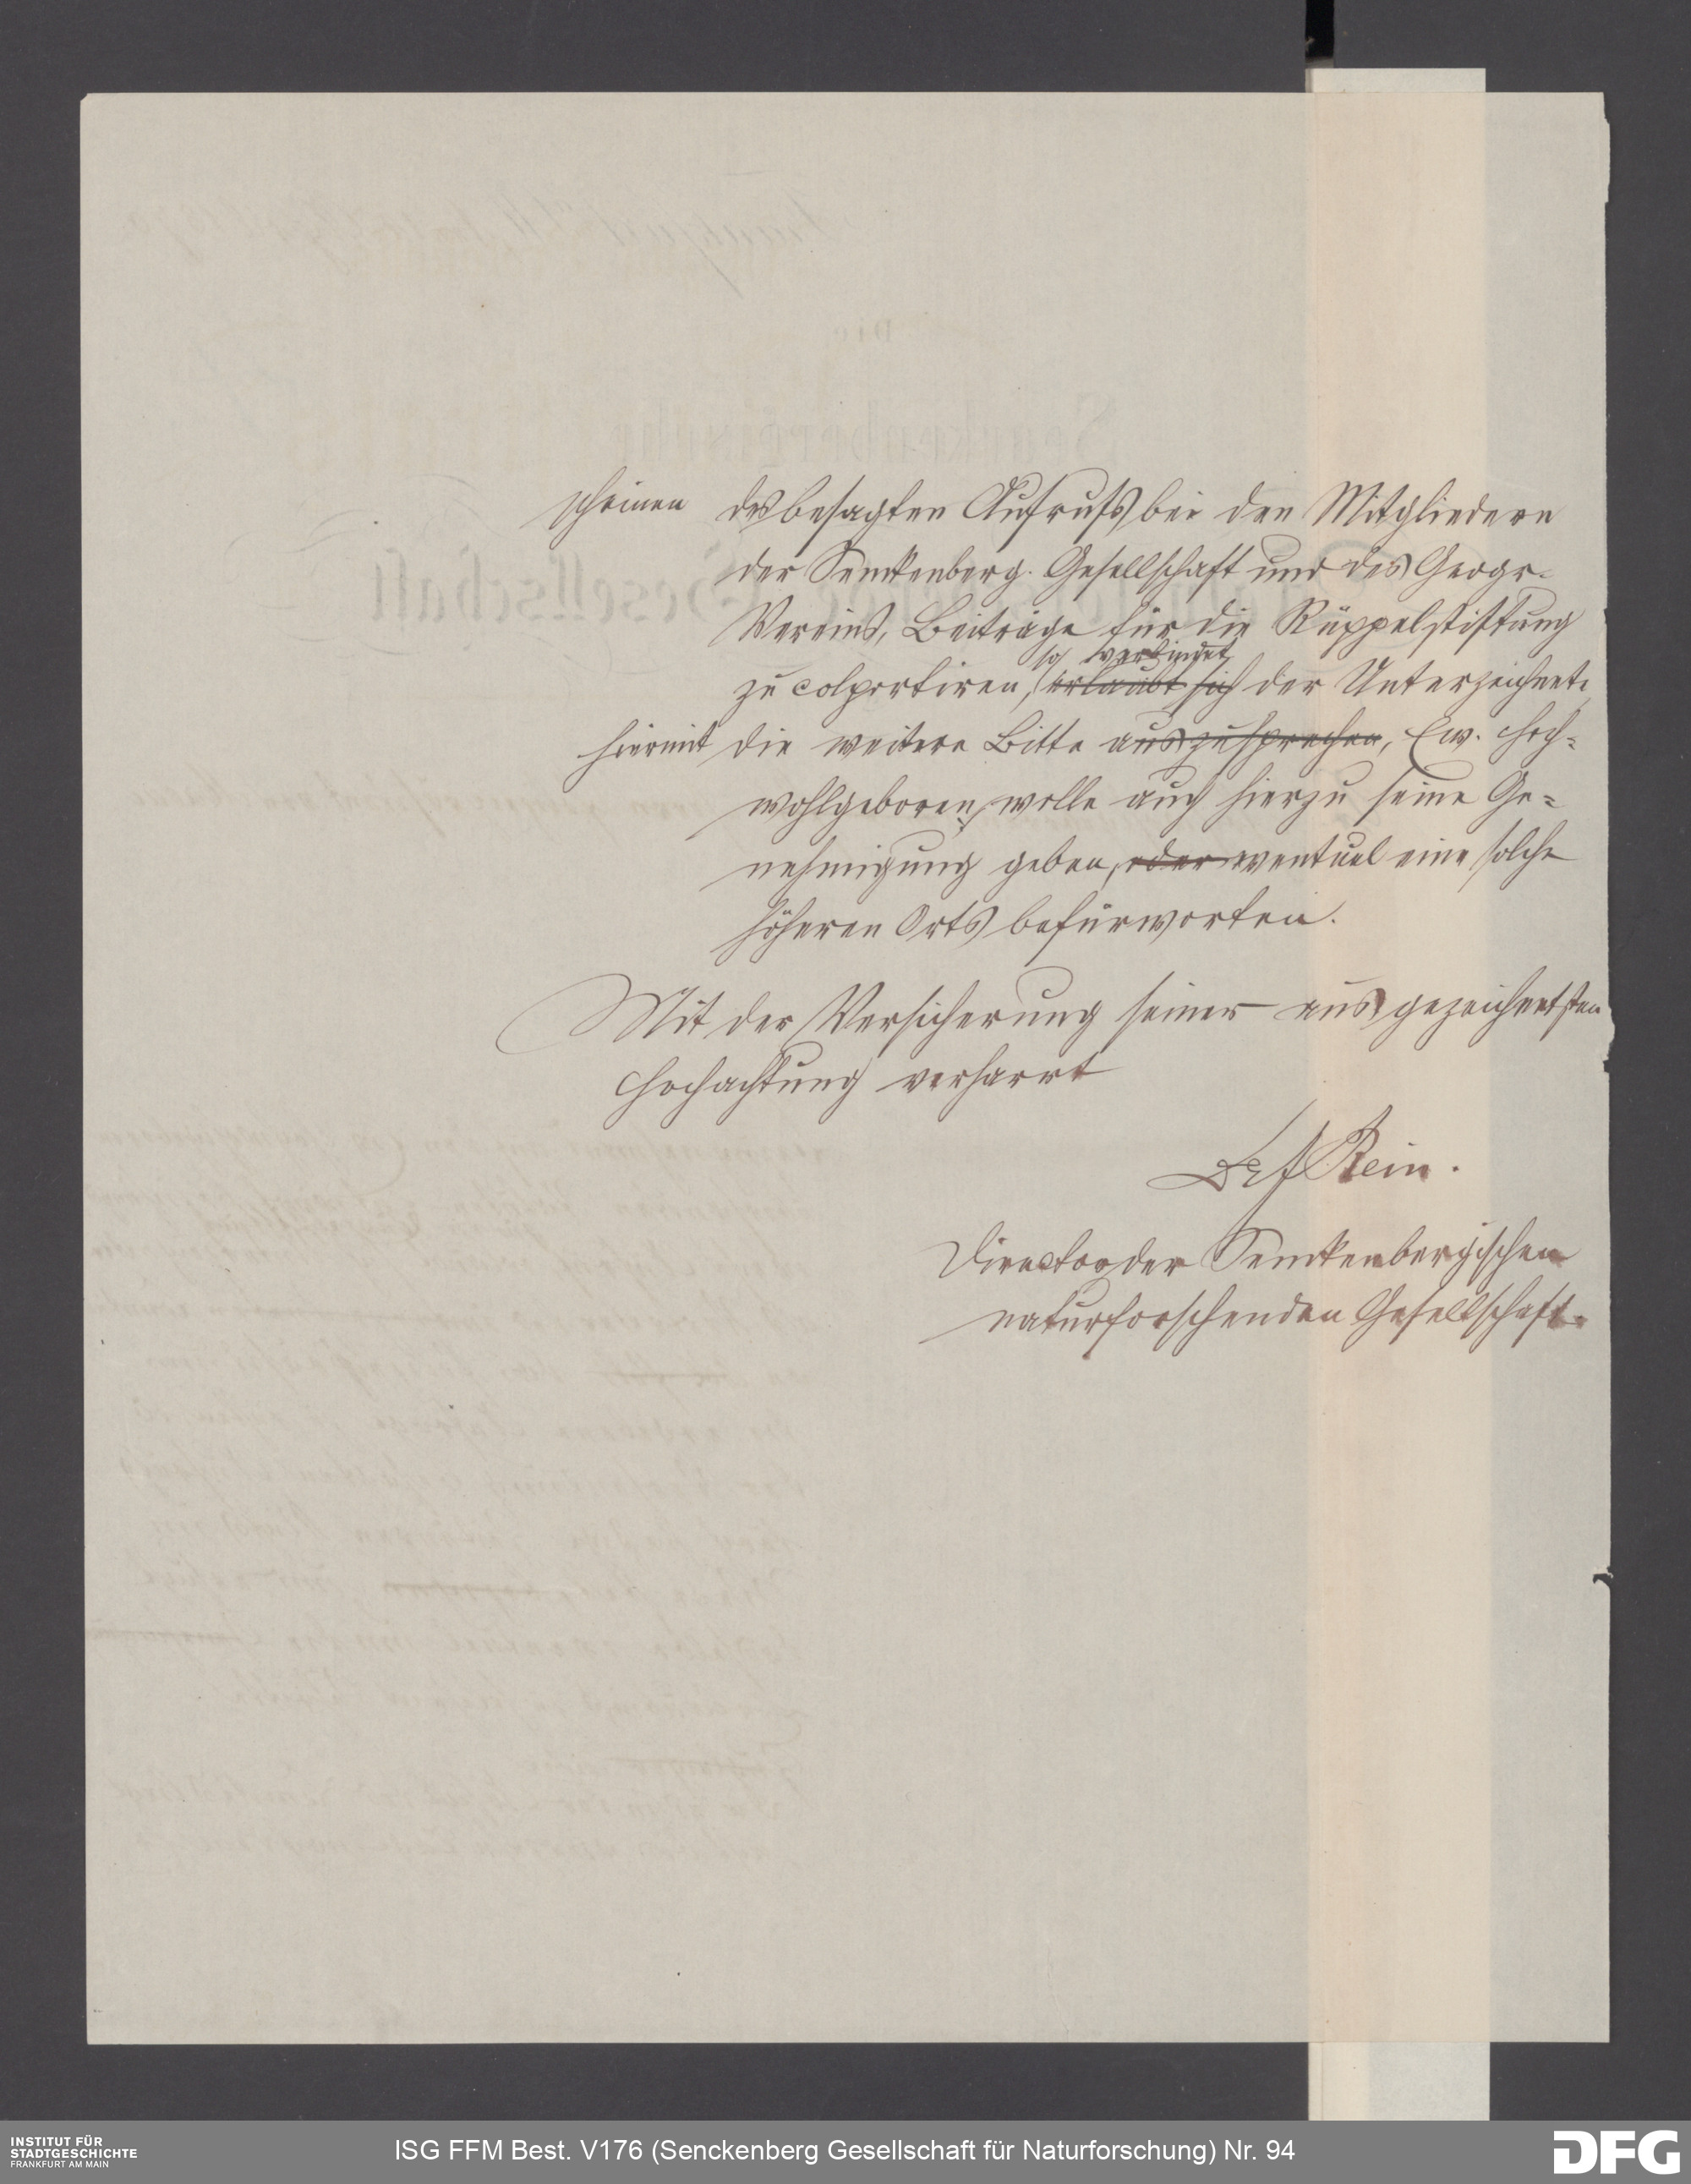 scheinen des besagten Aufrufs bei den Mitgliedern
der Senckenberg. Gesellschaft und des Geogr.
Vereins, Beiträge für die Rüppelstiftung
so verbindet
zu colportiren, erlaubt sich der Unterzeichnete
hiermit die weitere Bitte auszusprechen, Ew. Hoch-
wohlgeboren, wolle auch hierzu seine Ge-
nehmigung geben, oder eventuel eine solche
höheren Orts befürworten.
Mit der Versicherung seiner ausgezeichnetsten
Hochachtung verharrt
Rein.
Director der Senckenbergischen
naturforschenden Gesellschaft.
INSTITUT FÜR
STADTGESCHICHTE
FRANKFURT AM MAIN
ISG FFM Best. V176 (Senckenberg Gesellschaft für Naturforschung) Nr. 94
DFG